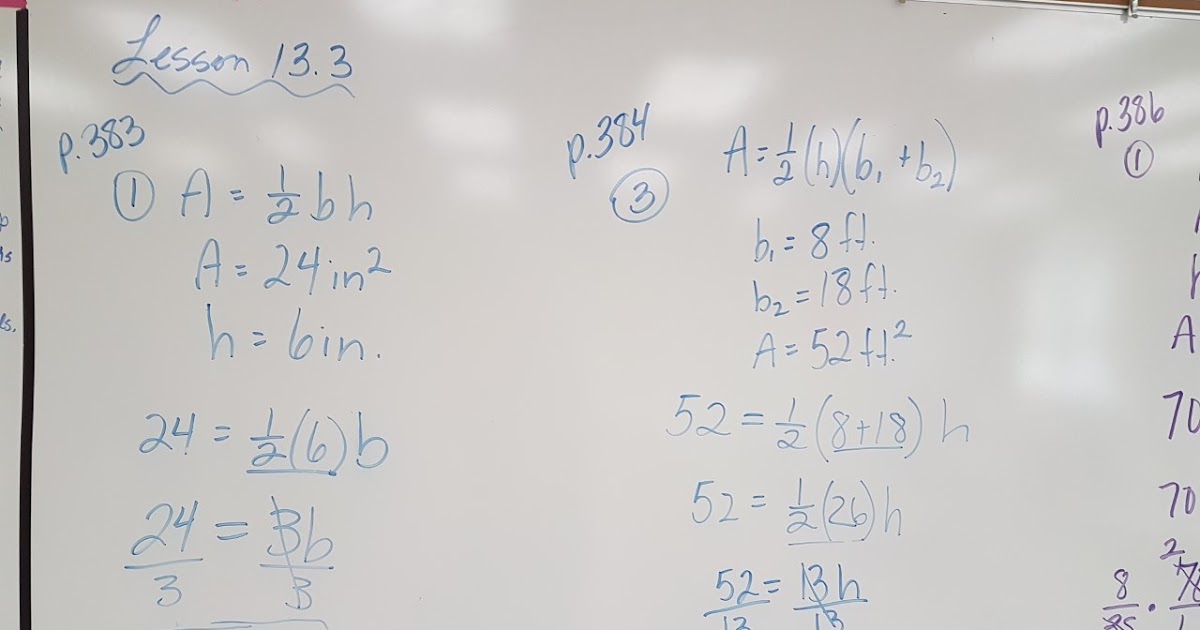 Lesson 13.3
p.383
① A = 1/2 bh
A = 24 in²
h = 6 in.
24 = 1/2 (6) b
24/3 = 3b/3
p.384
③ A = 1/2 (h)(b₁ + b₂)
b₁ = 8 ft.
b₂ = 18 ft.
A = 52 ft.²
52 = 1/2 (8+18) h
52 = 1/2 (26) h
52/13 = 13h/13
p.386
①
A
70
70